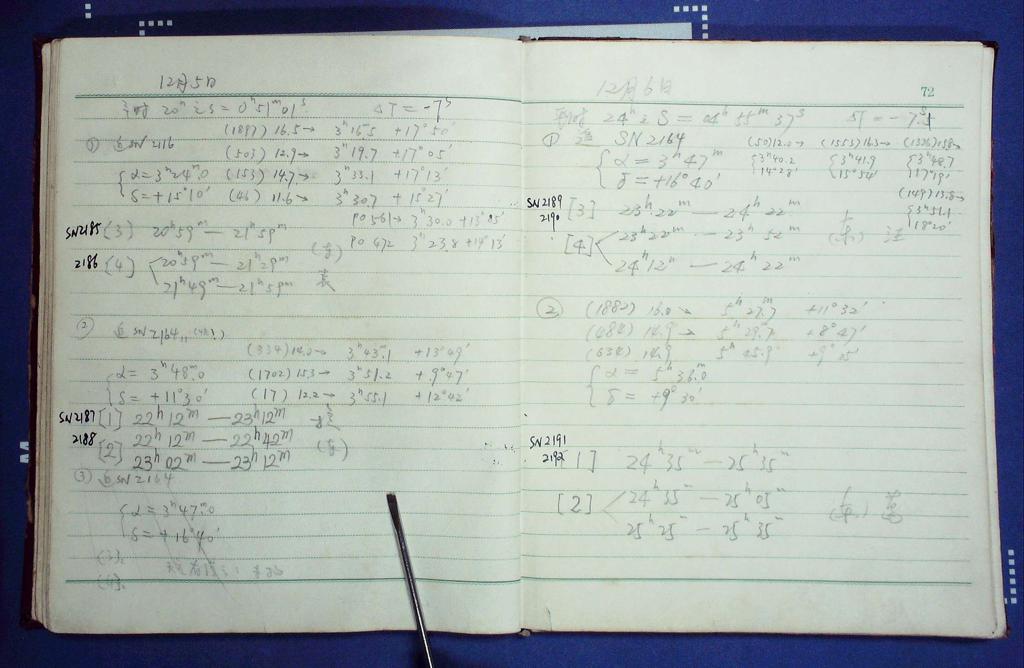 12月5日
20ʰ S = 0ʰ 51ᵐ 01ˢ ΔT = -7ˢ
(1897) 16.5→ 3ʰ16.5 +17°50'
① SN 2116
(503) 12.9→ 3ʰ19.7 +17°05'
α = 3ʰ24ᵐ.0 (153) 14.7→ 3ʰ33.1 +17°13'
δ = +15°10' (46) 11.6→ 3ʰ30.7 +15°27'
PO 561→ 3ʰ30.0
SN2185 (3) 20ʰ59ᵐ — 21ʰ59ᵐ PO 472 3ʰ23.8 +14°13'
2186 (4) 20ʰ59ᵐ — 21ʰ29ᵐ
21ʰ49ᵐ — 21ʰ59ᵐ
② SN 2164
(334) 14.0→ 3ʰ43ᵐ.1 +13°49'
α = 3ʰ48ᵐ.0 (1702) 15.3→ 3ʰ51.2 +9°47'
δ = +11°30' (17) 12.2→ 3ʰ55.1 +12°42'
SN2187 [1] 22ʰ12ᵐ — 23ʰ12ᵐ
2188 [2] 22ʰ12ᵐ — 22ʰ42ᵐ
23ʰ02ᵐ — 23ʰ12ᵐ
③ SN 2164
α = 3ʰ47ᵐ.0
δ = +16°40'
(3).
(4).
12月6日
72
24ʰ S = 04ʰ 55ᵐ 37ˢ
① SN 2164 (50)12.0→ (1553)16.3→ (1326)15.8→
α = 3ʰ47ᵐ 3ʰ40.2 3ʰ41.9 3ʰ48.7
δ = +16°40' 14°28' 15°54' 17°19'
(149)13.8→
SN2189 [3] 23ʰ22ᵐ — 24ʰ22ᵐ 3ʰ51.1
2190 18°20'
[4] 23ʰ22ᵐ — 23ʰ52ᵐ
24ʰ12ᵐ — 24ʰ22ᵐ
② (1882) 16.0→ 5ʰ27.7ᵐ +11°32'
(484) 14.9→ 5ʰ29.7 +8°47'
(634) 14.9 5ʰ45.9
α = 5ʰ36ᵐ.0
δ = +9°30'
SN2191
2192 [1] 24ʰ35ᵐ — 25ʰ35ᵐ
[2] 24ʰ35ᵐ — 25ʰ05ᵐ
25ʰ25ᵐ — 25ʰ35ᵐ